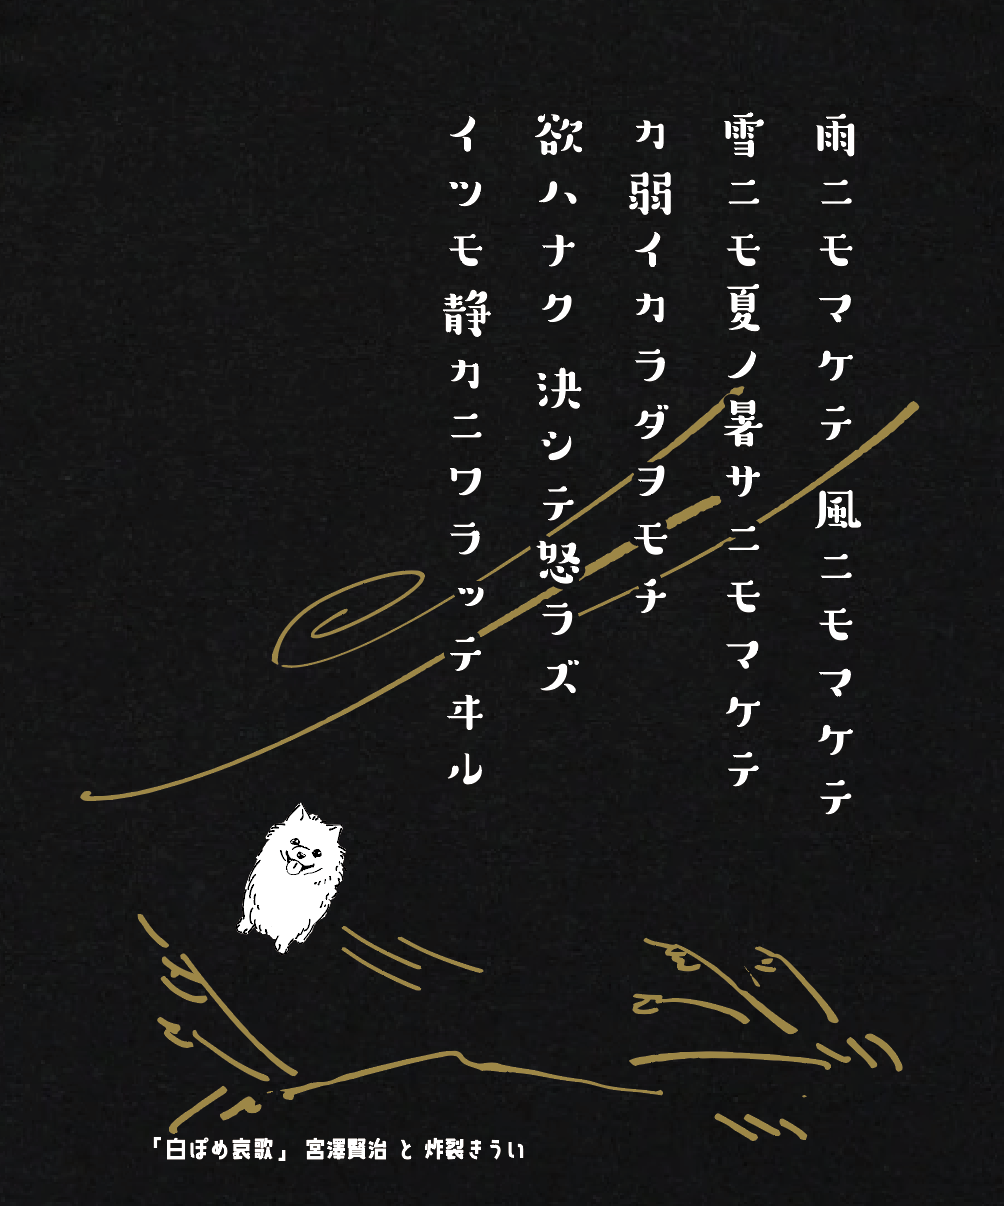 雨ニモマケテ 風ニモマケテ
雪ニモ夏ノ暑サニモマケテ
カ弱イカラダヲモチ
欲ハナク 決シテ怒ラズ
イツモ静カニワラッテヰル
「白ぽめ哀歌」 宮澤賢治 と 炸裂きうい